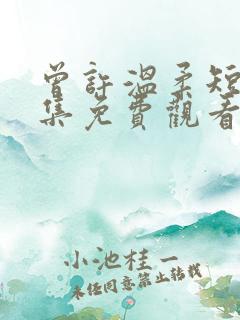 曾許溫柔短
集免費觀看
小池桂一
未经同意禁止转载